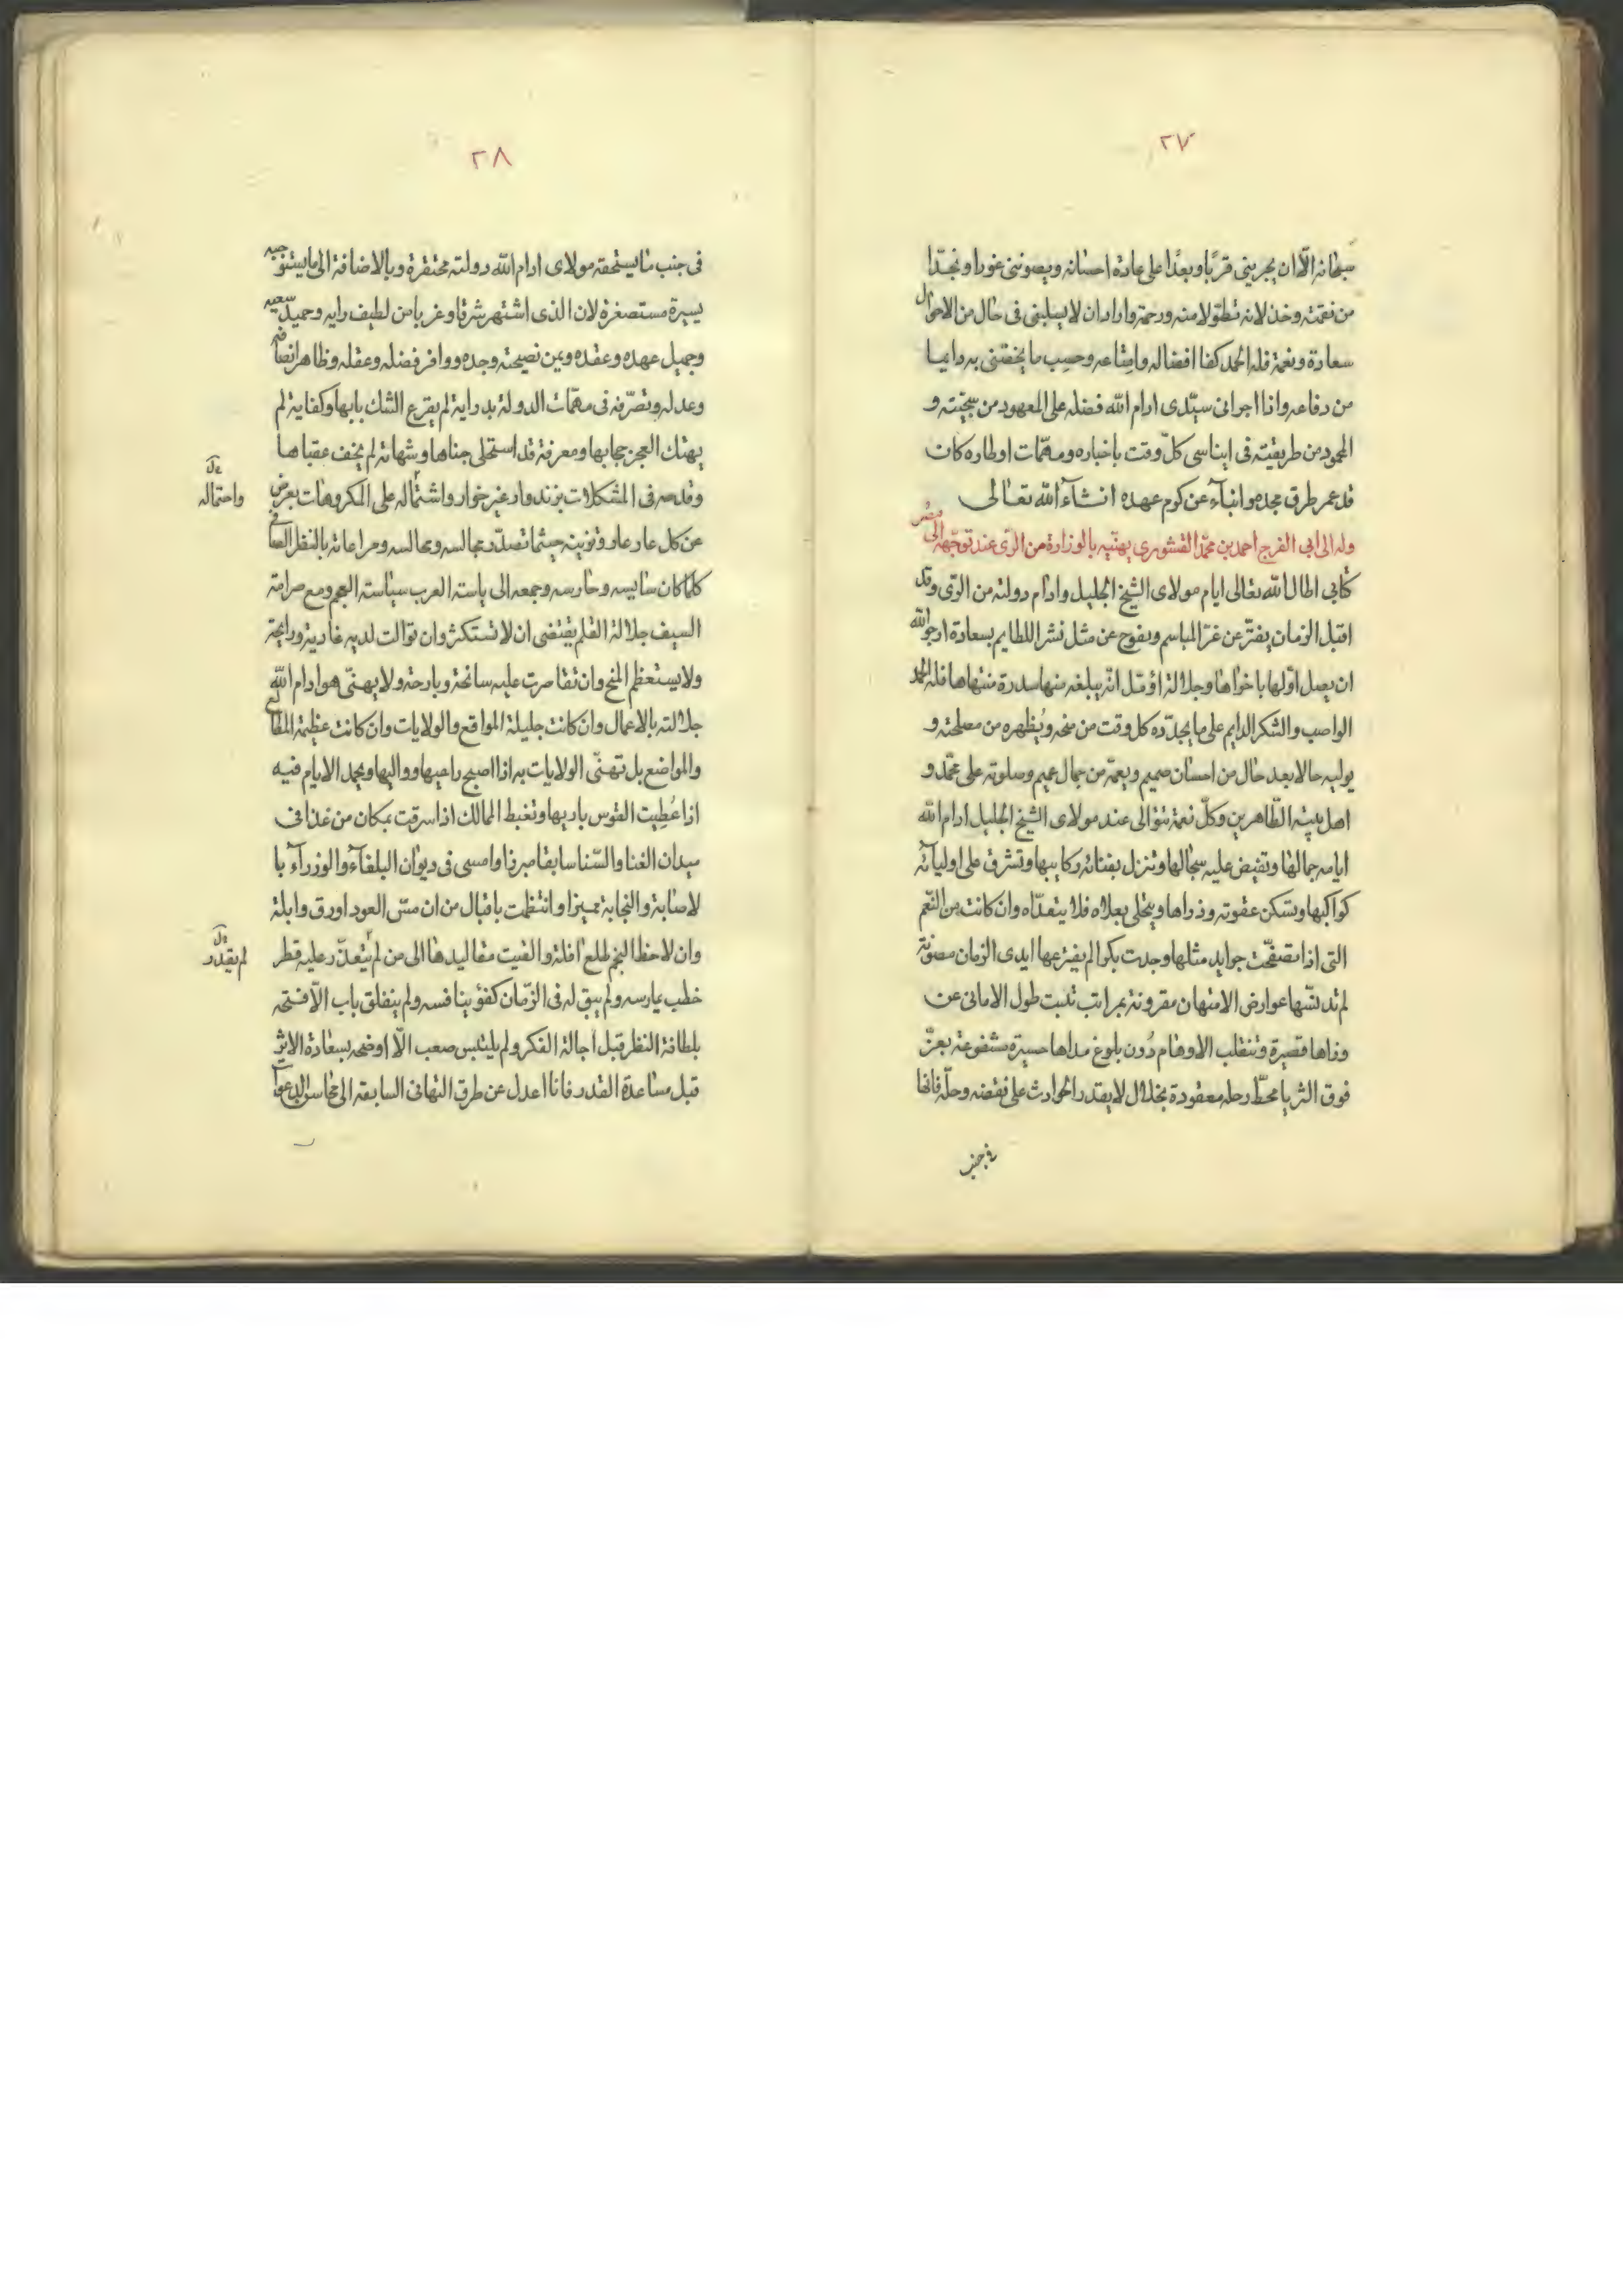 ٢٧
سبحانه الّا ان يجريني قربًا وبعدًا على عادة احسانه ويصونني غورا ونجدا
من نقمته وخذلانه تطوّلا منه ورحمة واراد ان لا يسلبني في حال من الاحوال
سعادة ونعمة فله الحمد كفا افضاله وامتاعه وحسب ما يخصّني به دايما
من دفاعه واذا اجراني سيّدي ادام الله فضله على المعهود من سجيّته و
المحمود من طريقته في ايناسي كلّ وقت باخباره ومهمّات اوطاره كان
قد عمر طرق مجده وانباء عن كرم عهده انشاء الله تعالى
وله الى ابي الفرج احمد بن محمّد القشوري يهنّيه بالوزارة من الرّي عند توجّهه الى مصر
كتابي اطال الله تعالى ايام مولاى الشيخ الجليل وادام دولته من الرّي وقد
اقبل الزمان يفترّ عن غرّ المباسم ويفوح عن مثل نشر اللطايم بسعادة ارجو الله
ان يصل اوّلها باخراها وجلالة اؤمّل انّه يبلغه منها سدرة منتهاها فله الحمد
الواصب والشكر الدايم على ما يجدّده كل وقت من منحه ويُظهره من مصلحته و
يوليه حالا بعد حال من احسان صميم ويعمّه من جمال عميم وصلوته على محمّد و
اهل بيته الطّاهرين وكلّ نعمة تتوالى عند مولاى الشيخ الجليل ادام الله
ايامه جمالها وتفيض عليه سجالها وتنزل بفنائه ركايبها وتشرق على اوليائه
كواكبها وتسكن عقوته وذراها ويتحلى بعلاه فلا يتعدّاه وان كانت من النّعم
التي اذا تصفّحت جوايد مثلها وجدت بكرا لم يفترعها ايدى الزمان مصونة
لم تدنسّها عوارض الامتهان مقرونة بمراتب تلبث طول الاماني عن
وذاها قصيرة وتنقلب الاوهام دُون بلوغ مداها حسيرة مشفوعة بعزّ
فوق الثريا محطّ رحله معقودة بخلال لا يقدر الحوادث على نقضه وحلّه فانها
في جنب
٢٨
فى جنب ما يستحقه مولاى ادام الله دولته محتقرة وبالاضافة الى ما يستوجبه
يسيرة مستصغرة لان الذى اشتهر شرقا وغربا من لطيف رايه وحميد سعيه
وجميل عهده وعقده ويمن نصيحته وجده ووافر فضله وعقله وظاهر انصافه
وعدله وتصرّفه فى مهمّات الدولة بدراية لم يقرع الشك بابها وكفاية لم
يهتك العجز حجابها ومعرفة قد استحلى جناها وشهامة لم يخف عقباها
وقدحه فى المشكلات بزند وار غير خوار واشتماله على المكروهات بعرض
واحتماله
عن كل عار عار وتزيينه حيثما تصدّر مجالسه ومراعاته بالنظر الصافى
كلما كان سايسه وحارسه وجمعه الى ياسته العرب سياسة العجم ومع صرامة
السيف جلالة القلم يقتضى ان لا تستكثر وان توالت لديه غادية ورايحة
ولا يستعظم المنح وان تقاصرت عليه سانحة وبارحة ولا يهنى هو ادام الله
جلالته بالاعمال وان كانت جليلة المواقع والولايات وان كانت عظيمة المطالع
والمواضع بل تهنّى الولايات به اذا اصبح راعيها وواليها ويحمد الايام فيه
اذا عُطيت القوس باريها وتغبط الممالك اذا سرقت بمكان من غذا فى
ميدان الغنا والسّنا سابقا مبرزا وامسى فى ديوان البلغاء والوزراء با
لاصابة والنجابة مميزا وانتظمت باقبال من ان مسّ العود اورق وابلة
وان لاحظ النجم طلع افلة والقيت مقاليدها الى من لم يتعذّر عليه قطر
لم يقدر
خطب يمارسه ولم يبق له فى الزمان كفؤ ينافسه ولم ينغلق باب الّا فتحه
بلطافة النظر قبل اجالة الفكر ولم يلتبس صعب الّا اوضحه بسعادة الاثر
قبل مساعدة القدر فانا اعدل عن طرق التهانى السابقة الى محاسن الدعوات